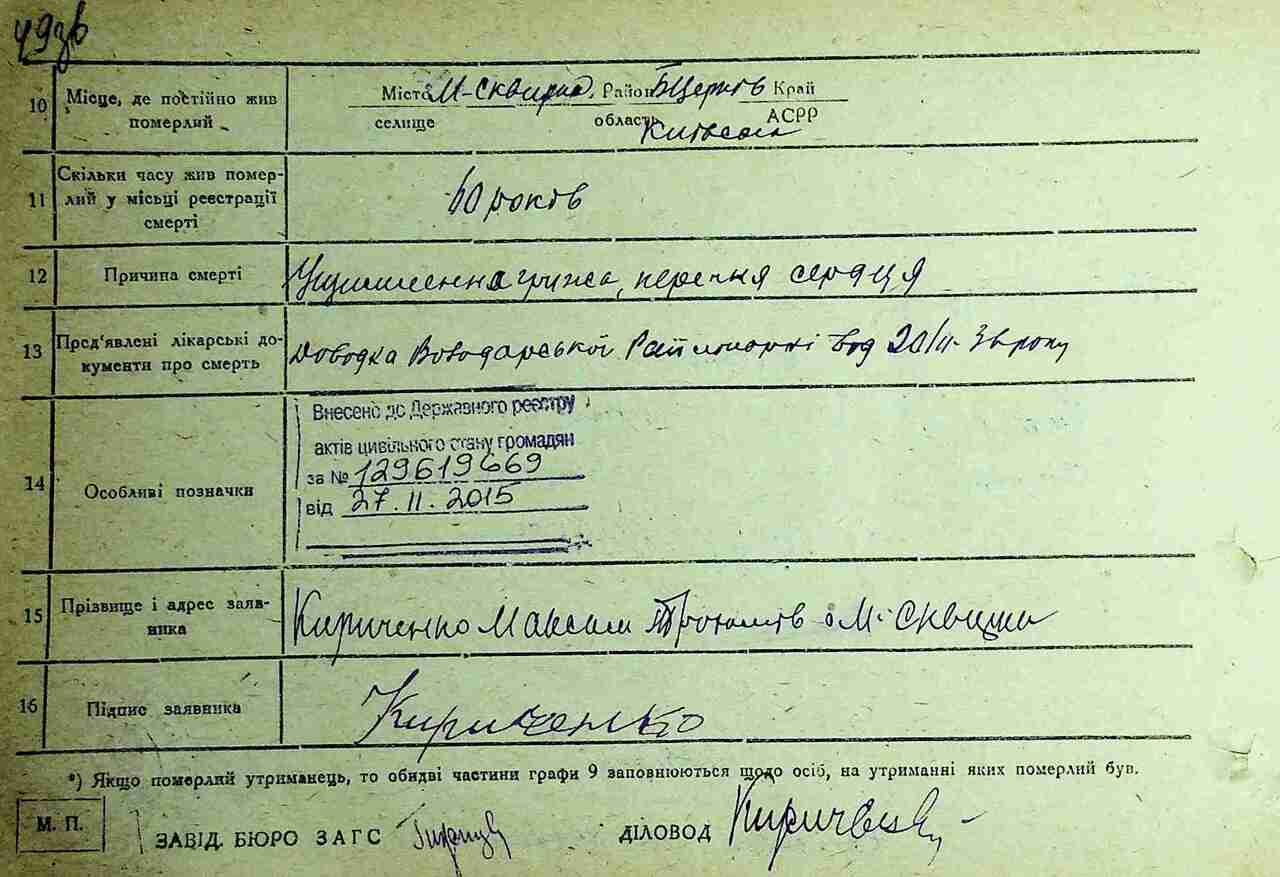 49зв
10 Місце, де постійно жив померлий
Місто М-Сквира. Район БЦерків Край
селище область Київська АСРР
11 Скільки часу жив помер-
лий у місці реєстрації
смерті
60 років
12 Причина смерті
грижа, сердця
13 Пред'явлені лікарські до-
кументи про смерть
Володарської від 20/II- року
14 Особливі позначки
Внесено до Державного реєстру
актів цивільного стану громадян
за № 129619669
від 27.11.2015
15 Прізвище і адрес заяв-
ника
Кириченко Максим М- Сквира
16 Підпис заявника
Кириченко
*) Якщо померлий утриманець, то обидві частини графи 9 заповнюються щодо осіб, на утриманні яких померлий був.
М. П.
ЗАВІД. БЮРО ЗАГС ДІЛОВОД